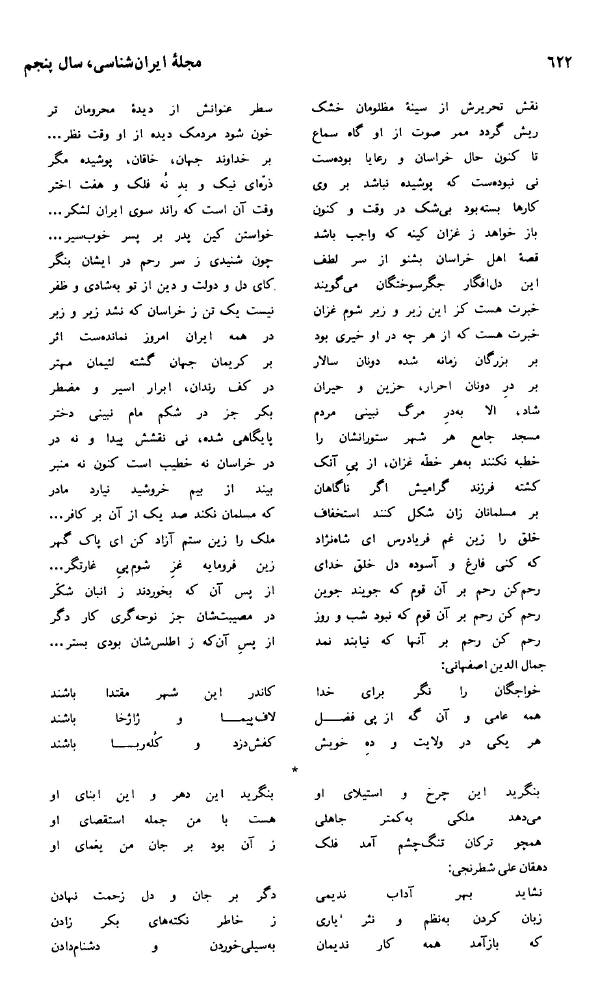 ۶۲۲ مجلهٔ ایران‌شناسی، سال پنجم
نقش تحریرش از سینهٔ مظلومان خشک سطر عنوانش از دیدهٔ محرومان تر
ریش گردد ممر صوت از او گاه سماع خون شود مردمک دیده از او وقت نظر...
تا کنون حال خراسان و رعایا بوده‌ست بر خداوند جهان، خاقان، پوشیده مگر
نی نبوده‌ست که پوشیده نباشد بر وی ذره‌ای نیک و بدِ نُه فلک و هفت اختر
کارها بسته‌بود بی‌شک در وقت و کنون وقت آن است که راند سوی ایران لشکر...
باز خواهد ز غزان کینه که واجب باشد خواستن کین پدر بر پسر خوب‌سیر...
قصهٔ اهل خراسان بشنو از سر لطف چون شنیدی ز سر رحم در ایشان بنگر
این دل‌افگار جگرسوختگان می‌گویند کای دل و دولت و دین از تو به‌شادی و ظفر
خبرت هست کز این زیر و زبر شوم غزان نیست یک تن ز خراسان که نشد زیر و زبر
خبرت هست که از هر چه در او خیری بود در همه ایران امروز نمانده‌ست اثر
بر بزرگان زمانه شده دونان سالار بر کریمان جهان گشته لئیمان مهتر
بر درِ دونان احرار، حزین و حیران در کف رندان، ابرار اسیر و مضطر
شاد، الا به‌درِ مرگ نبینی مردم بکر جز در شکم مام نبینی دختر
مسجد جامع هر شهر ستورانشان را پایگاهی شده، نی نقشش پیدا و نه در
خطبه نکنند به‌هر خطّه غزان، از پیِ آنک در خراسان نه خطیب است کنون نه منبر
کشته فرزند گرامیش اگر ناگاهان بیند از بیم خروشید نیارد مادر
بر مسلمانان زان شکل کنند استخفاف که مسلمان نکند صد یک از آن بر کافر...
خلق را زین غم فریادرس ای شاه‌نژاد ملک را زین ستم آزاد کن ای پاک گهر
که کنی فارغ و آسوده دل خلق خدای زین فرومایه غزِ شوم‌پیِ غارتگر...
رحم‌کن رحم بر آن قوم که جویند جوین از پس آن که بخوردند ز انبان شکّر
رحم کن رحم بر آن قوم که نبود شب و روز در مصیبت‌شان جز نوحه‌گری کار دگر
رحم کن رحم بر آنها که نیابند نمد از پسِ آن‌که ز اطلس‌شان بودی بستر...
جمال الدین اصفهانی:
خواجگان را نگر برای خدا کاندر این شهر مقتدا باشند
همه عامی و آن گه از پی فضل لاف‌پیما و ژاژخا باشند
هر یکی در ولایت و دهِ خویش کفش‌دزد و کُله‌ربا باشند
*
بنگرید این چرخ و استیلای او بنگرید این دهر و این ابنای او
می‌دهد ملکی به‌کمتر جاهلی هست با من جمله استقصای او
همچو ترکان تنگ‌چشم آمد فلک ز آن بود بر جان من یغمای او
دهقان علی شطرنجی:
نشاید بهر آداب ندیمی دگر بر جان و دل زحمت نهادن
زبان کردن به‌نظم و نثر یاری ز خاطر نکته‌های بکر زادن
که بازآمد همه کار ندیمان به‌سیلی‌خوردن و دشنام‌دادن